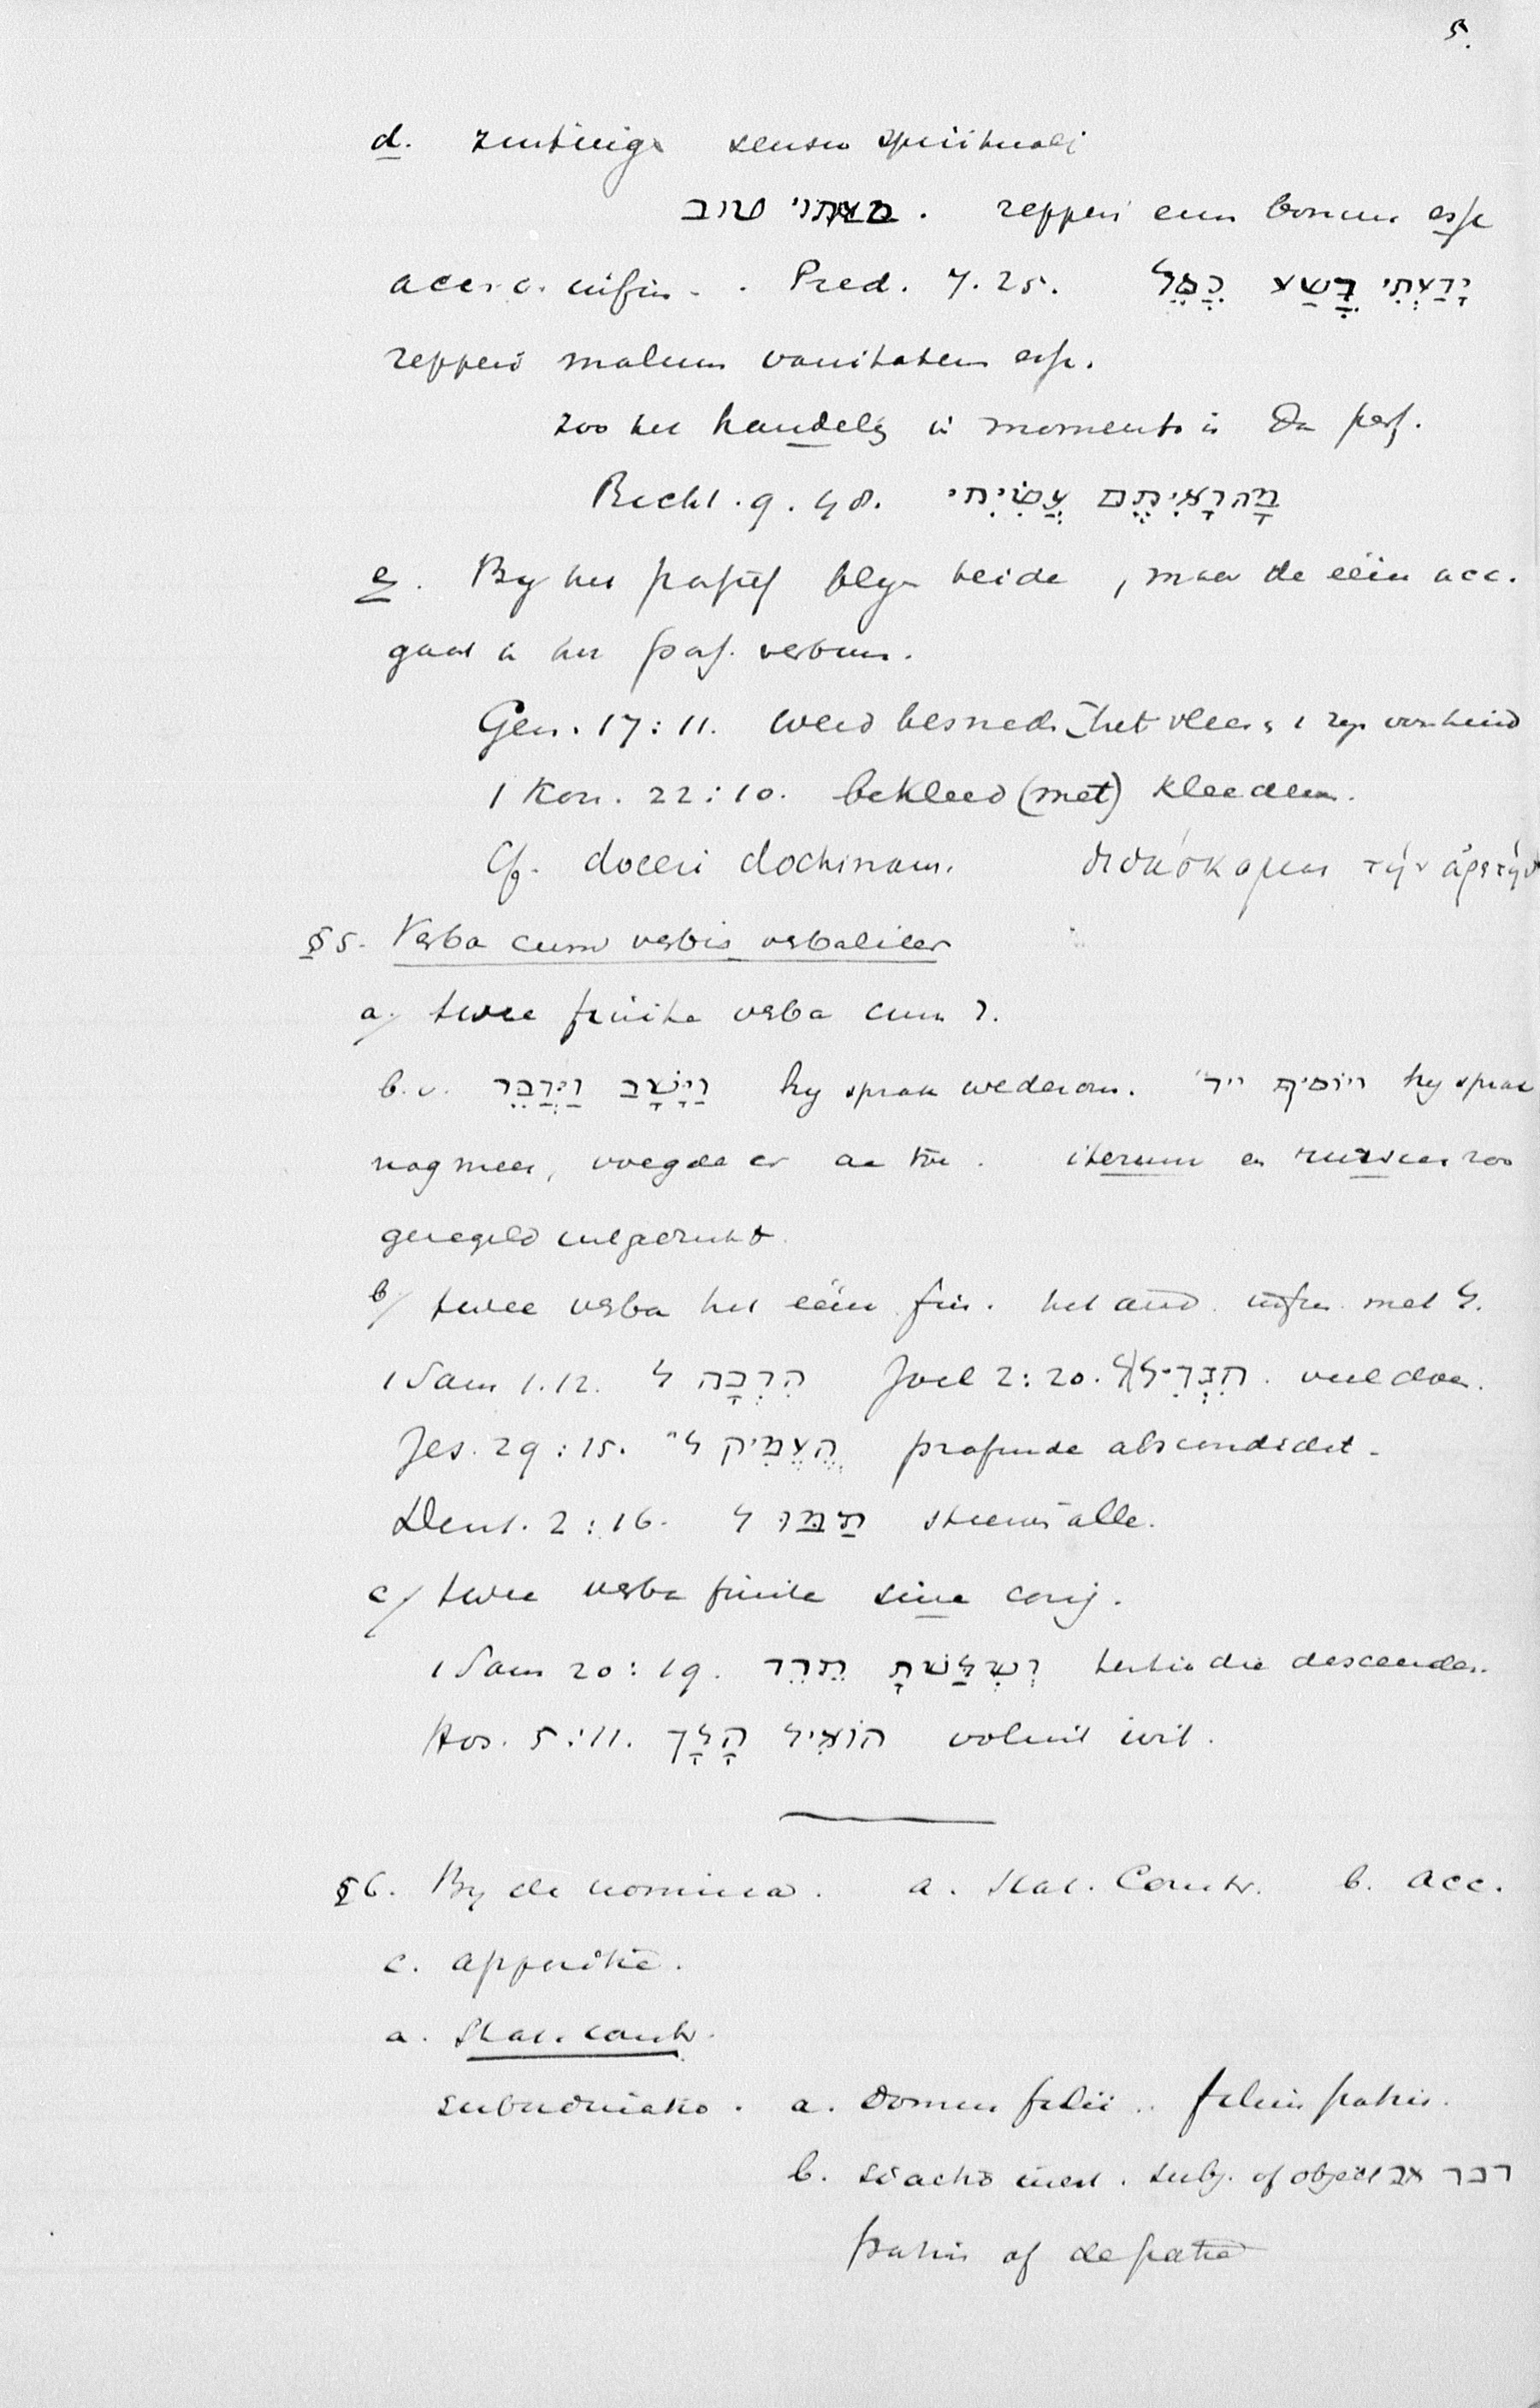 5.
d. zintuig sensu spirituali
מצאתי טוב. repperi eum bonum esse
acc. c. infin. . Pred. 7.25. יָדַעְתִּי רֶשַׁע כֶּסֶל
repperi malum vanitatem esse.
zoo het handels in momento is Da perf.
Richt. 9.48. מָה רְאִיתֶם עָשִׂיתִי
e. By het passief blyv beide, maar de eéén acc.
gaat in het pas. verbum.
Gen. 17:11. werd besneden het vlees voorhuid
1 Kon. 22:10. bekleed (met) kleederen.
Cf. doceri doctrinam. διδάσκομαι τὴν ἀρετὴν
§5. Verba cum verbis verbaliter
a/ twee finite verba cum ו.
b.v. וַיָּשָׁב וַיְדַבֵּר hy sprak wederom. ויוסיף יד" hy sprak
nog meer, voegde er aan toe. iterum en rursus zoo
geregeld uitgedrukt.
b/ twee verba het eéén fin. het and. infin. met ל.
1 Sam 1.12. הִרְבָּה ל Joel 2:20. הִגְדִּיל ל. veel doen.
Jes. 29:15. הֶעֱמִיק ל" profunde abscondidit.
Deut. 2:16. תַּמּוּ ל stierven alle.
c/ twee verba finita sine conj.
1 Sam 20:19. וְשִׁלַּשְׁתָּ תֵּרֵד tertio die descendes.
Hos. 5:11. הוֹאִיל הָלַךְ voluit ivit.
§6. By de nomina. a. Stat. Constr. b. acc.
c. appositie.
a. Stat. constr.
subordinatio. a. Domus filii .. filius patris.
b. si actio inest. subj. of object דבר אב
patris of de patre